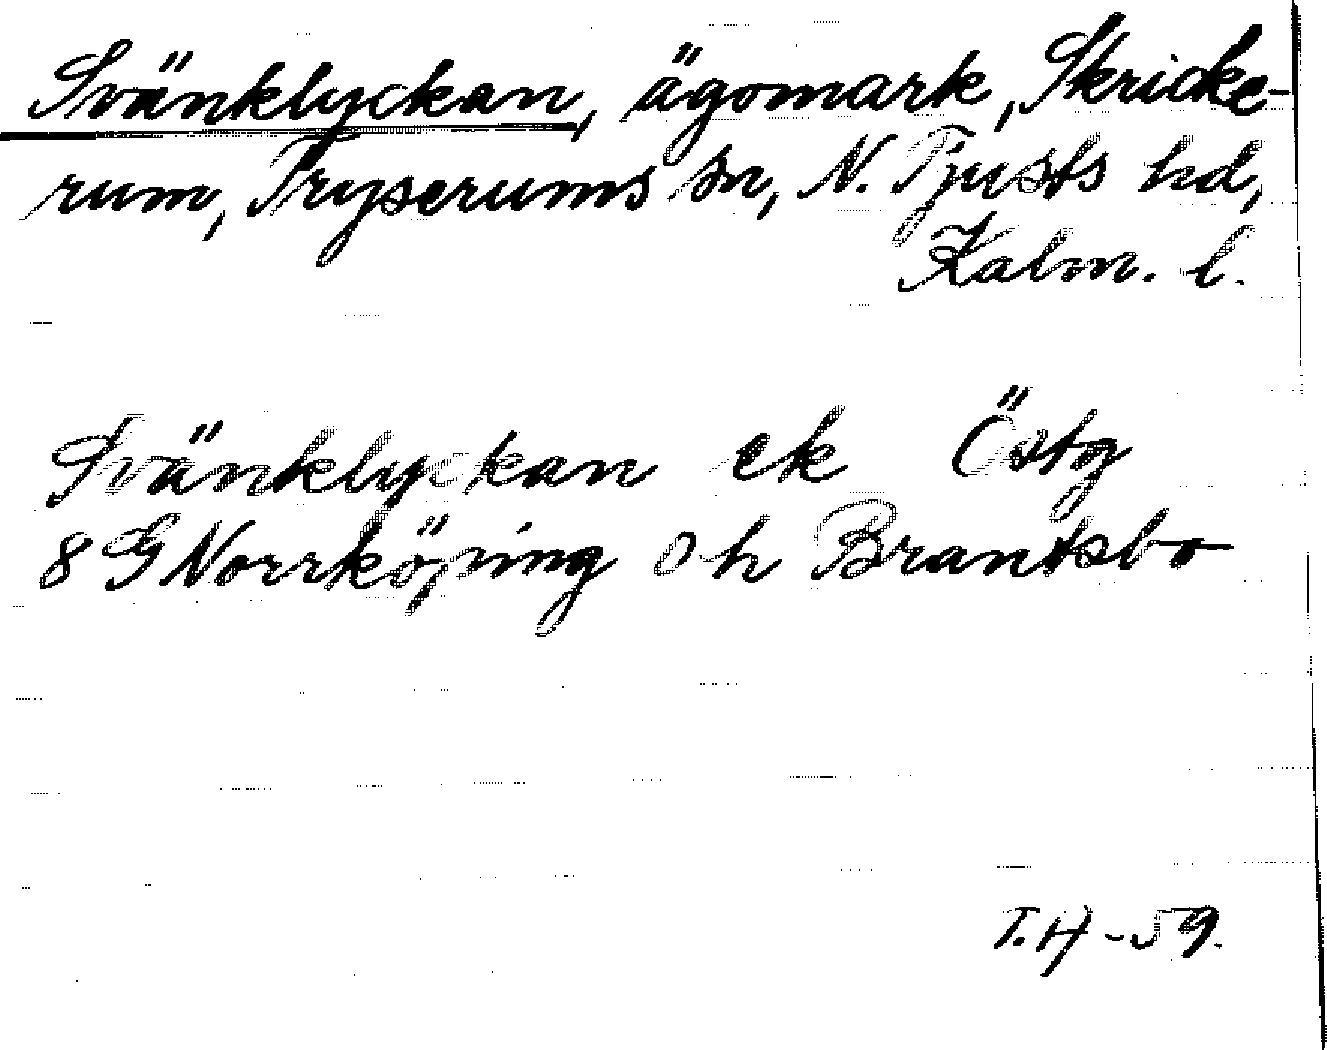 Svänklyckan, ägomark, Skricke-
rum, Tryserums sn, N. Tjusts hd,
Kalm. l.
Svänklyckan ek Östg
8 G Norrköping Oh Brantsbo
T.H -59.